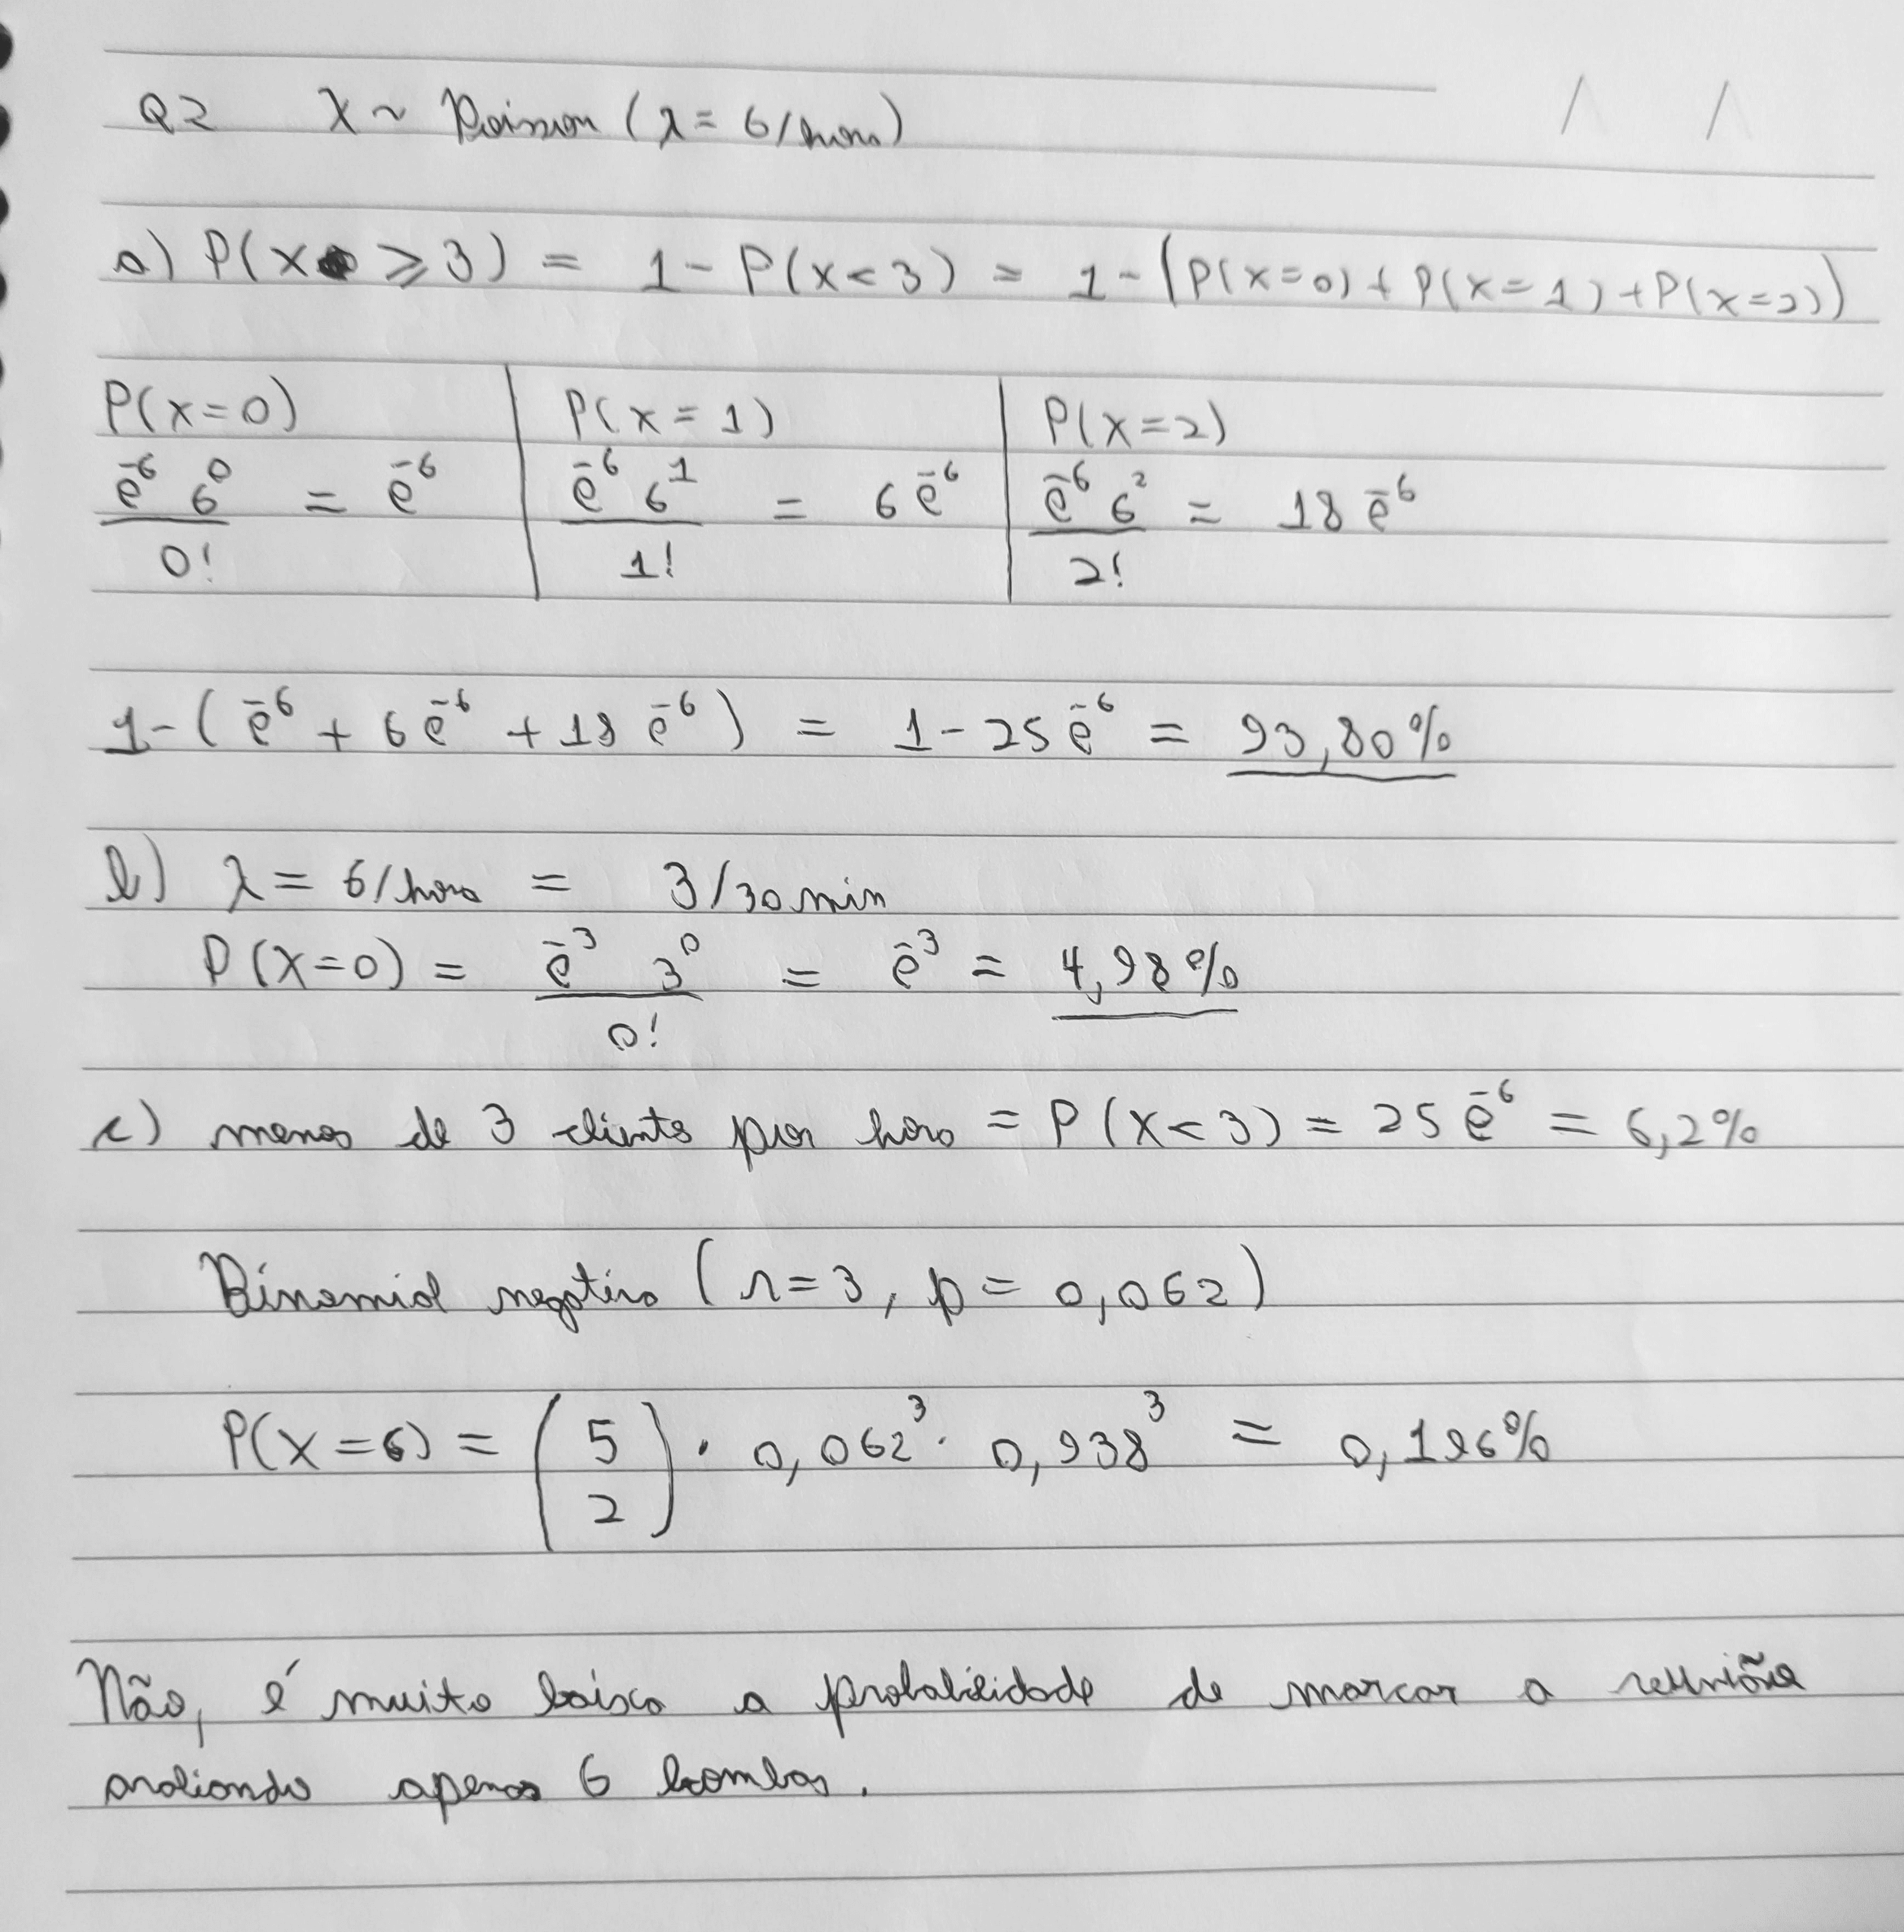 Q2 X ~ Poisson (λ = 6/hora)
a) P(X ≥ 3) = 1 - P(X < 3) = 1 - (P(X=0) + P(X=1) + P(X=2))
P(X=0) | P(X=1) | P(X=2)
e^-6 6^0 / 0! = e^-6 | e^-6 6^1 / 1! = 6 e^-6 | e^-6 6^2 / 2! = 18 e^-6
1 - (e^-6 + 6 e^-6 + 18 e^-6) = 1 - 25 e^-6 = 93,80%
b) λ = 6/hora = 3/30 min
P(X=0) = e^-3 3^0 / 0! = e^-3 = 4,98%
c) menos de 3 clients por hora = P(X < 3) = 25 e^-6 = 6,2%
Binomial negativa (r = 3, p = 0,062)
P(X = 6) = (5 2) · 0,062^3 · 0,938^3 = 0,196%
Não, é muito baixa a probabilidade de marcar a reunião
avaliando apenas 6 bombas.